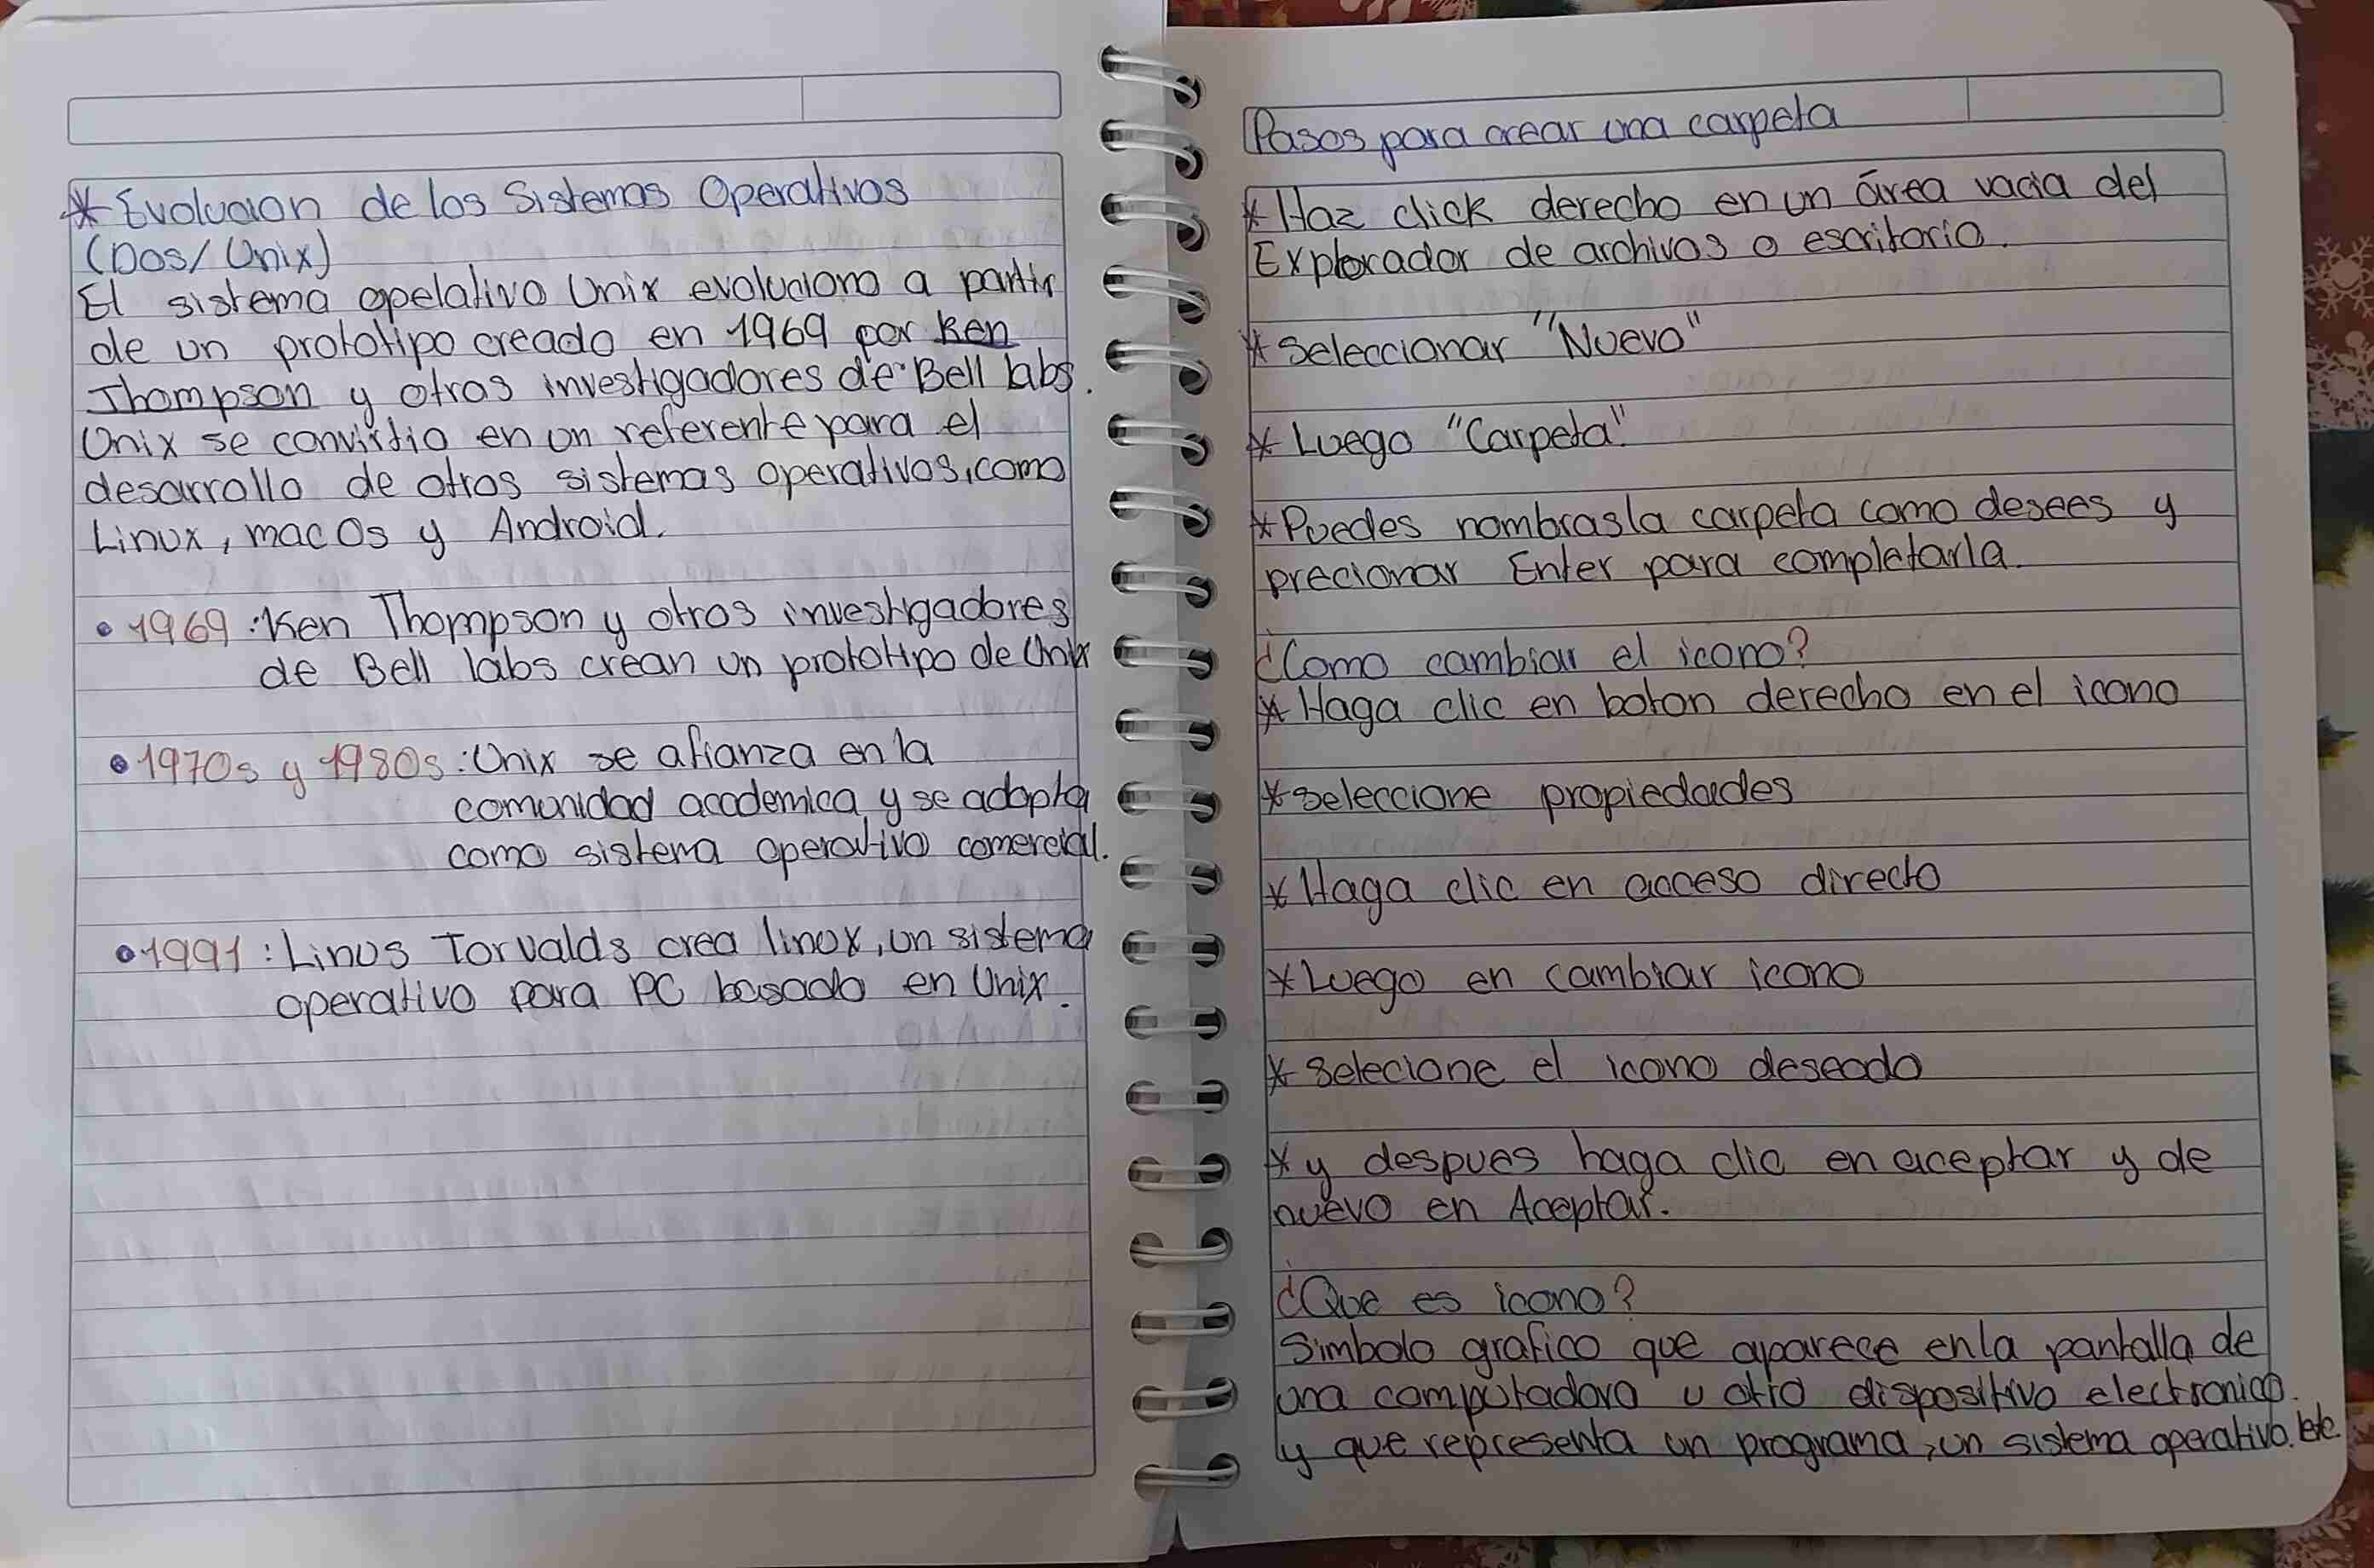 * Evolucion de los Sistemas Operativos
(Dos/Unix)
El sistema opelativo Unix evoluciono a partir
de un prototipo creado en 1969 por Ken
Thompson y otros investigadores de Bell labs.
Unix se convirtio en un referente para el
desarrollo de otros sistemas operativos, como
Linux, mac Os y Android.
• 1969: Ken Thompson y otros investigadores
de Bell labs crean un prototipo de Unix
• 1970s y 1980s: Unix se afianza en la
comunidad academica y se adopta
como sistema operativo comercial.
• 1991: Linus Torvalds crea linox, un sistema
operativo para PC basado en Unix.
Pasos para crear una carpeta
* Haz click derecho en un área vacia del
Explorador de archivos o escritorio.
* Seleccionar "Nuevo"
* Luego "Carpeta".
* Puedes nombras la carpeta como desees y
precionar Enter para completarla.
¿Como cambiar el icono?
* Haga clic en boton derecho en el icono
* seleccione propiedades
* Haga clic en acceso directo
* Luego en cambiar icono
* Selecione el icono deseado
* y despues haga clic en aceptar y de
nuevo en Aceptar.
¿Que es icono?
Simbolo grafico que aparece en la pantalla de
una computadora u otro dispositivo electronico.
y que representa un programa, un sistema operativo. ete